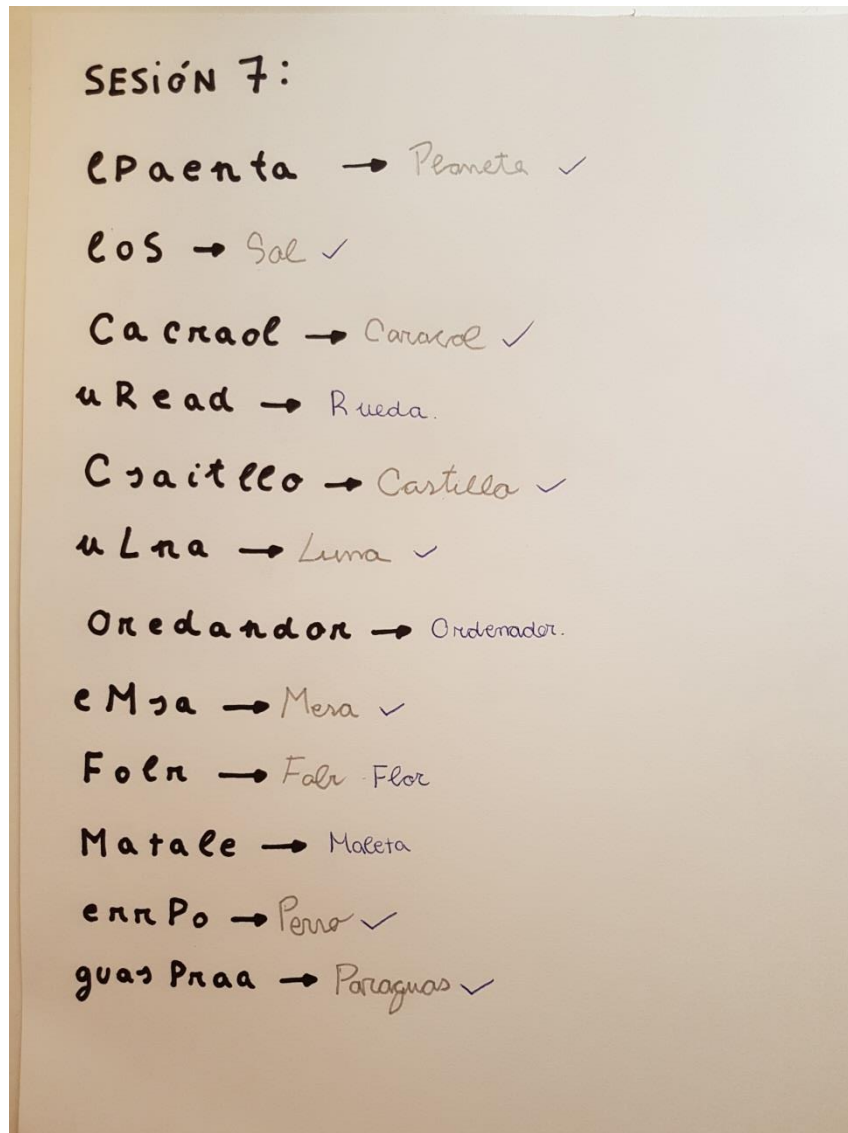 SESióN 7:
lPaenta → Planeta ✓
loS → Sol ✓
Cacraol → Caracol ✓
uRead → Rueda.
Csaitllo → Castillo ✓
uLna → Luna ✓
Oredandor → Ordenador.
eMsa → Mesa ✓
Folr → Folr Flor
Matale → Maleta
errPo → Perro ✓
guasPraa → Paraguas ✓